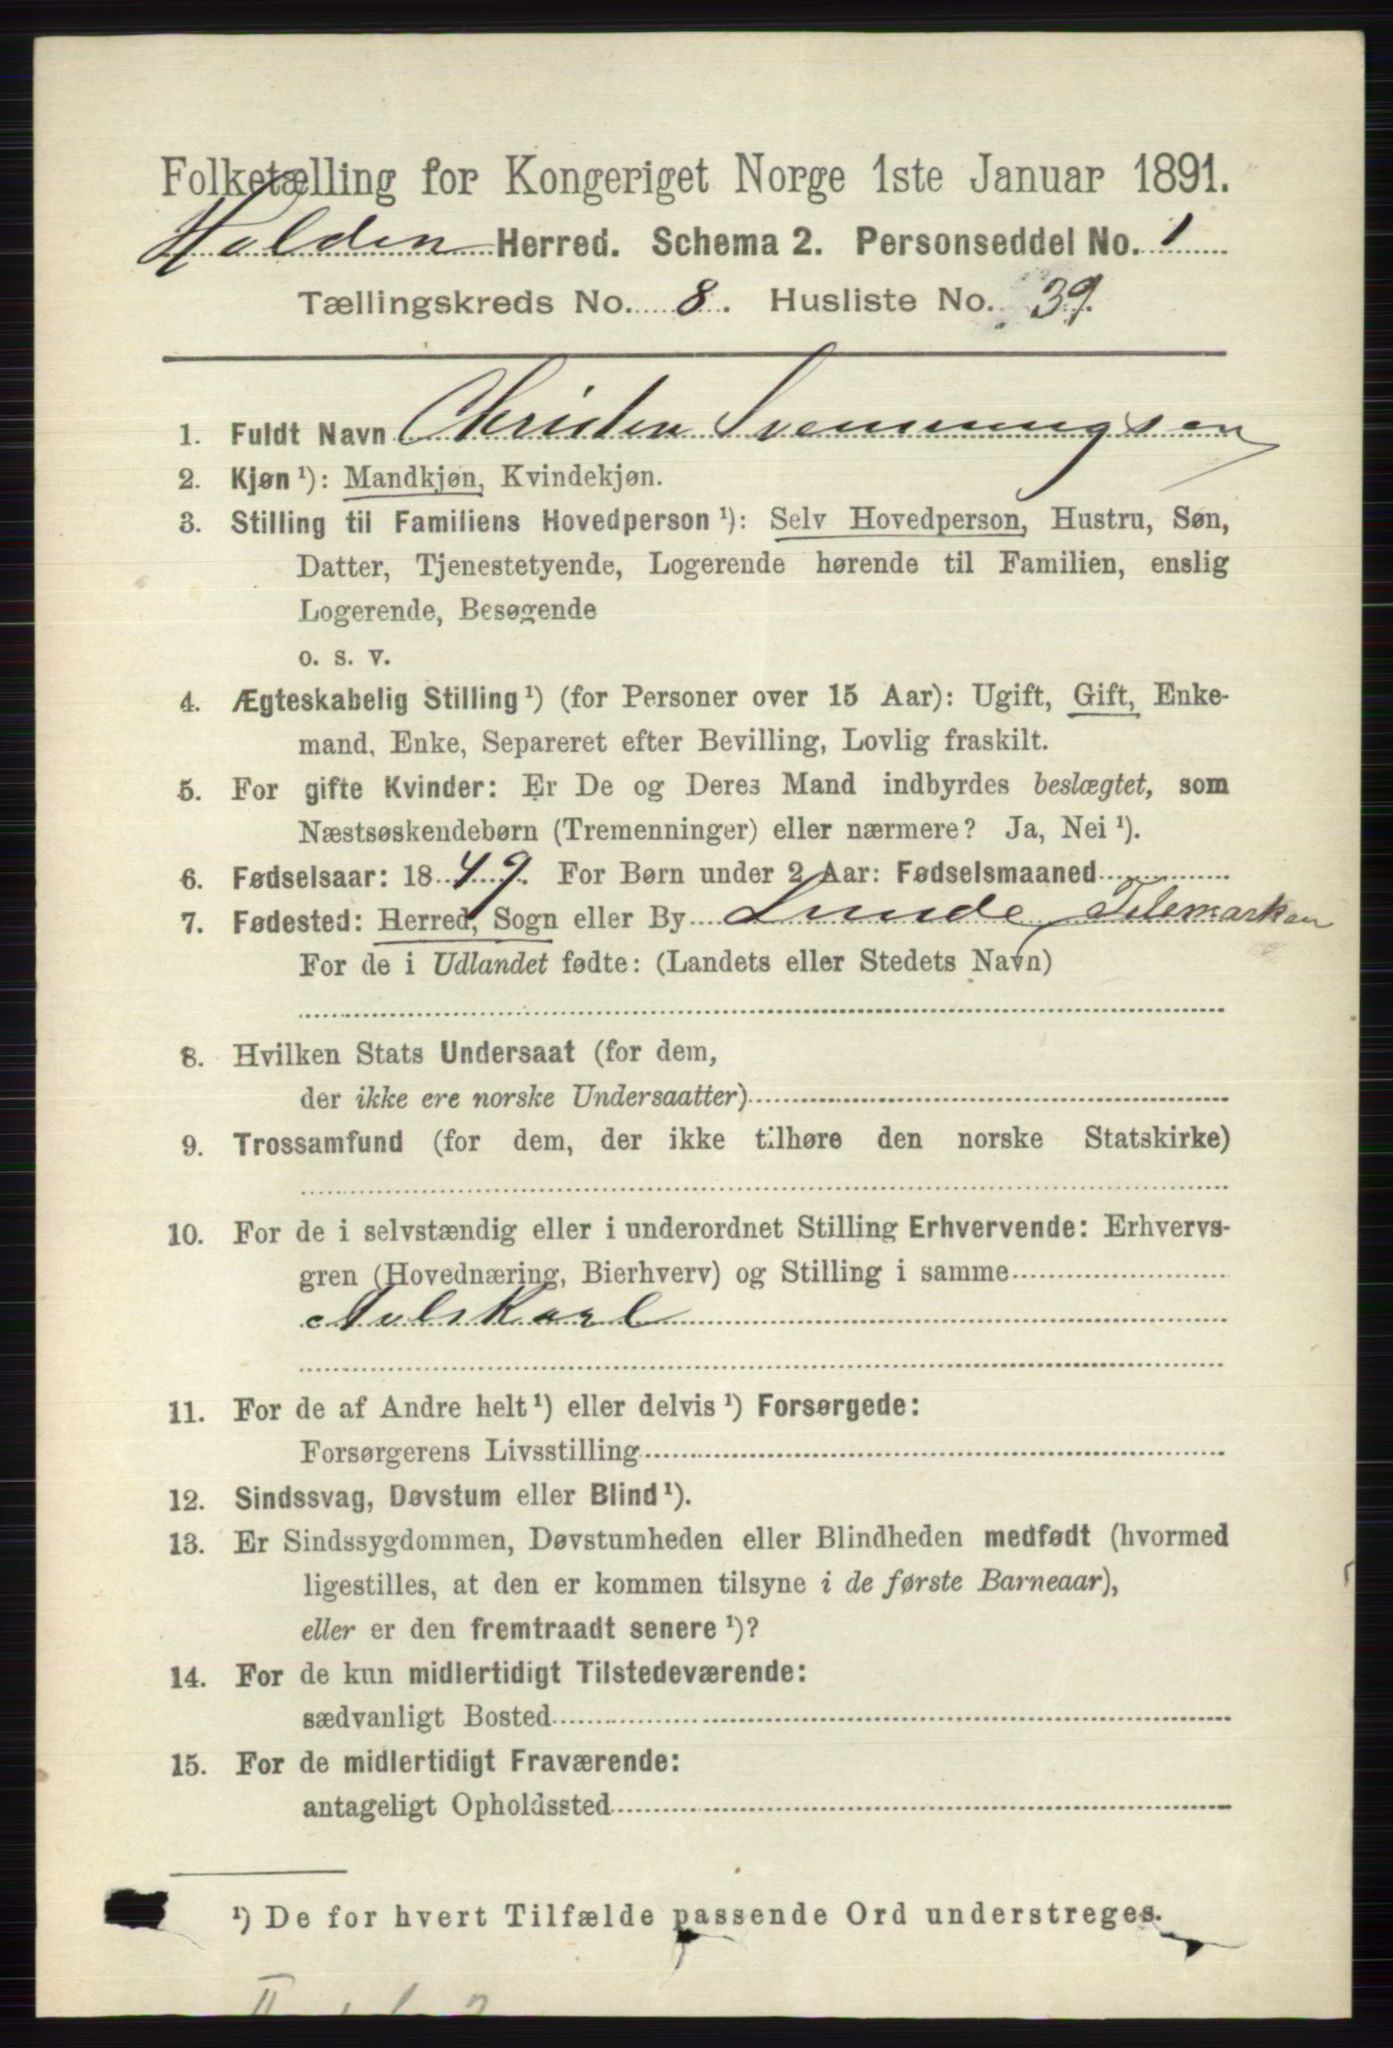 Folketælling for Kongeriget Norge 1ste Januar 1891.
Holden Herred. Schema 2. Personseddel No. 1
Tællingskreds No. 8. Husliste No. 39.
1. Fuldt Navn Christen Svenningsen
2. Kjøn ¹): Mandkjøn, Kvindekjøn.
3. Stilling til Familiens Hovedperson ¹): Selv Hovedperson, Hustru, Søn,
Datter, Tjenestetyende, Logerende hørende til Familien, enslig
Logerende, Besøgende
o. s. v.
4. Ægteskabelig Stilling ¹) (for Personer over 15 Aar): Ugift, Gift, Enke-
mand, Enke, Separeret efter Bevilling, Lovlig fraskilt.
5. For gifte Kvinder: Er De og Deres Mand indbyrdes beslægtet, som
Næstsøskendebørn (Tremenninger) eller nærmere? Ja, Nei ¹).
6. Fødselsaar: 1849. For Børn under 2 Aar: Fødselsmaaned
7. Fødested: Herred, Sogn eller By Lunde Telemarken
For de i Udlandet fødte: (Landets eller Stedets Navn)
8. Hvilken Stats Undersaat (for dem,
der ikke ere norske Undersaatter)
9. Trossamfund (for dem, der ikke tilhøre den norske Statskirke)
10. For de i selvstændig eller i underordnet Stilling Erhvervende: Erhvervs-
gren (Hovednæring, Bierhverv) og Stilling i samme
11. For de af Andre helt ¹) eller delvis ¹) Forsørgede:
Forsørgerens Livsstilling
12. Sindssvag, Døvstum eller Blind ¹).
13. Er Sindssygdommen, Døvstumheden eller Blindheden medfødt (hvormed
ligestilles, at den er kommen tilsyne i de første Barneaar),
eller er den fremtraadt senere ¹)?
14. For de kun midlertidigt Tilstedeværende:
sædvanligt Bosted
15. For de midlertidigt Fraværende:
antageligt Opholdssted
¹) De for hvert Tilfælde passende Ord understreges.